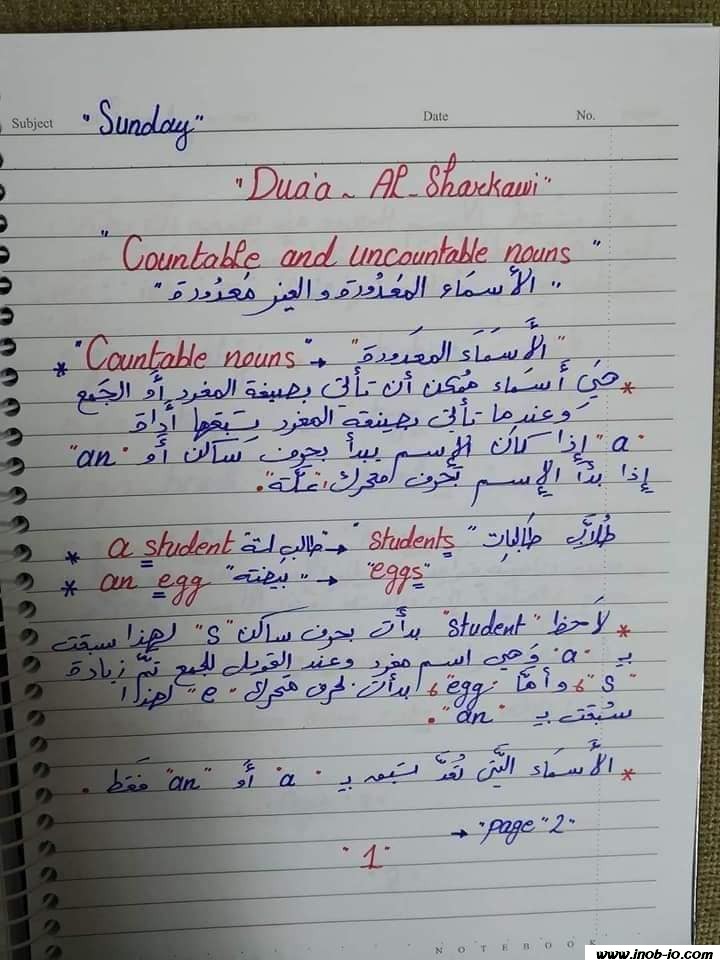 Subject "Sunday" Date No.
"Dua'a - Al-Sharkawi"
"Countable and uncountable nouns"
"الأسمَاء المعْدُودة والغير مَعدُودة"
* "Countable nouns" → "الأَسمَاء المعَدودة"
* هيَ أَسمَاء مُمكن أن تأتي بصيغة المفرد أو الجَمع
وَعندما تأتي بصيغة المفرد يسَبقها أَداة
"a" إذا كان الإسم يبدأ بحرف سَاكن أَو "an"
إذا بدأ الإسم بحرف متحرك "علّة".
* a student طالب/ـة → "students" طُلاَّب طَالبات
* an egg "بيضة" → "eggs"
* لاَحظ "student" بدأت بحرف ساكن "s" لهذا سبقت
بـ "a" وَهي اسم مفرد وعند التحويل للجمع تمَّ زيادة
"s" وأمَّا "egg" بدأت بحرف متحرك "e" لهذا
سُبقت بـ "an".
* الأَسمَاء الَّتي تُعدَّ تسَبق بـ "a" أَو "an" فَقَط.
→ "page "2"
"1"
NOTEBOOK
www.inob-io.com